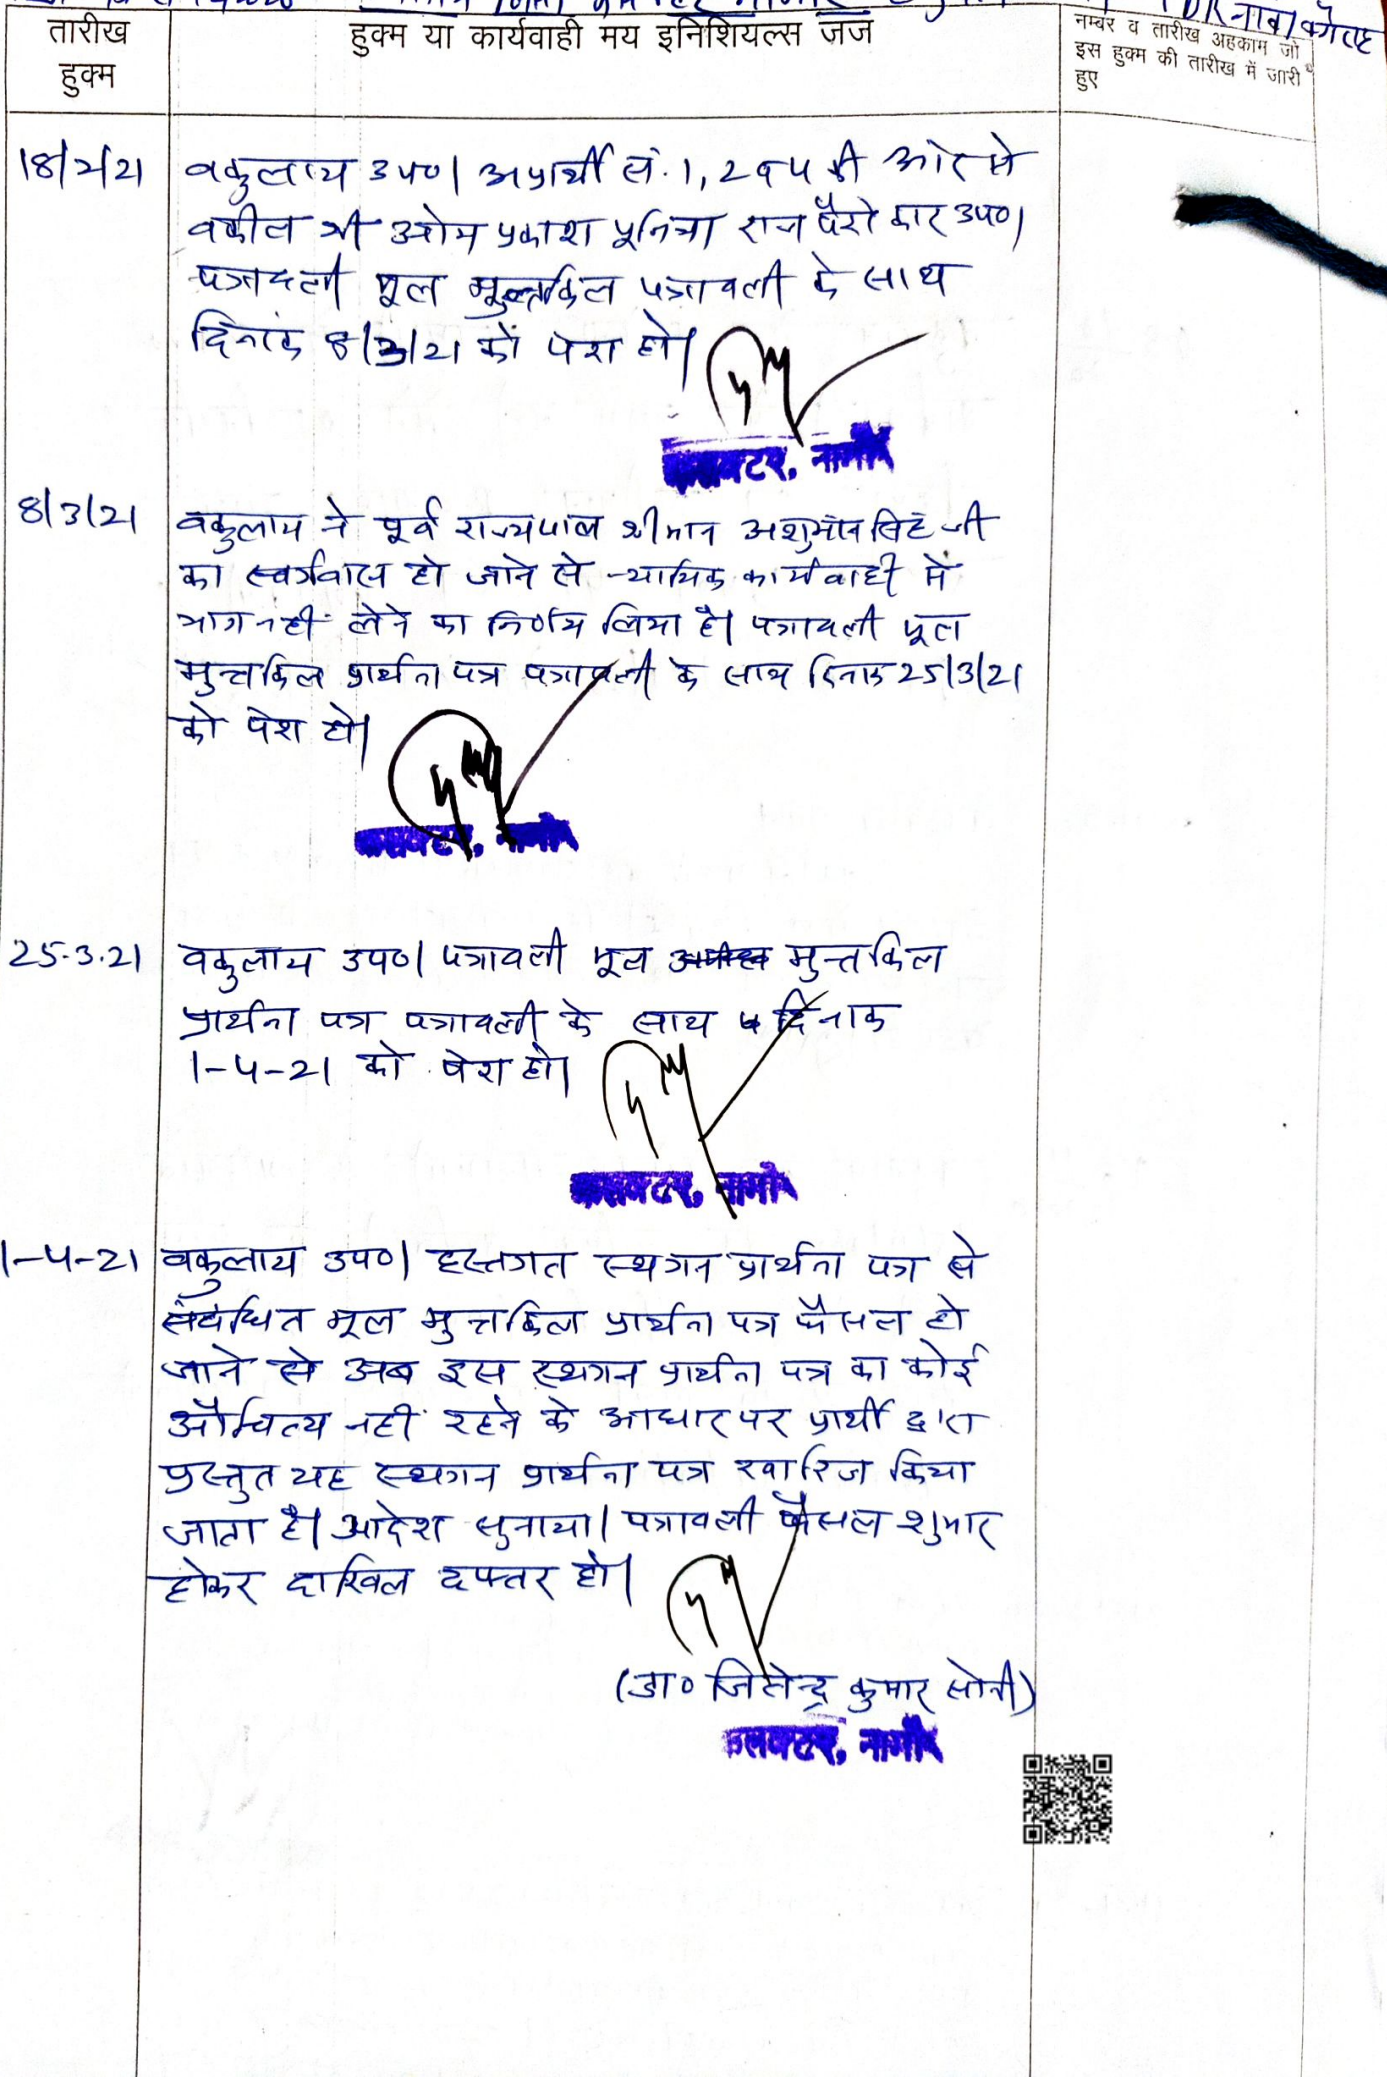 तारीख
हुक्म
हुक्म या कार्यवाही मय इनिशियल्स जज
नम्बर व तारीख अहकाम जो
इस हुक्म की तारीख में जारी
हुए
18/2/21 वकुलाय उप०। अप्रार्थी सं. 1, 2 व 4 की ओर से
वकील श्री ओम प्रकाश पूनिया राज पैरोकार उप०।
पत्रावली मूल मुन्तकिल पत्रावली के साथ
दिनांक 8/3/21 को पेश हो।
कलक्टर, नागौर
8/3/21 वकुलाय ने पूर्व राज्यपाल श्रीमान अशुमान सिंह जी
का स्वर्गवास हो जाने से न्यायिक कार्यवाही में
भाग नहीं लेने का निर्णय लिया है। पत्रावली मूल
मुन्तकिल प्रार्थना पत्र पत्रावली के साथ दिनाक 25/3/21
को पेश हो।
कलक्टर, नागौर
25.3.21 वकुलाय उप०। पत्रावली मूल मुन्तकिल
प्रार्थना पत्र पत्रावली के साथ दिनाक
1-4-21 को पेश हो।
कलक्टर, नागौर
1-4-21 वकुलाय उप०। हस्तगत स्थगन प्रार्थना पत्र से
संबंधित मूल मुन्तकिल प्रार्थना पत्र फैसल हो
जाने से अब इस स्थगन प्रार्थना पत्र का कोई
औचित्य नहीं रहने के आधार पर प्रार्थी द्वारा
प्रस्तुत यह स्थगन प्रार्थना पत्र खारिज किया
जाता है। आदेश सुनाया। पत्रावली फैसल शुमार
होकर दाखिल दफ्तर हो।
(डा० जितेन्द्र कुमार सोनी)
कलक्टर, नागौर